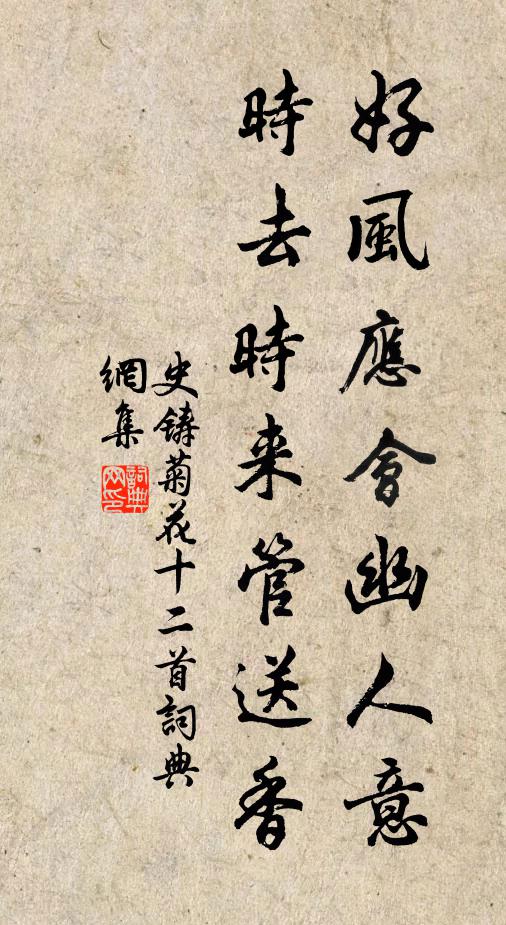 好風應會幽人意
時去時来管送香
史鑄菊花十二首詞典
網集
詞典
网印